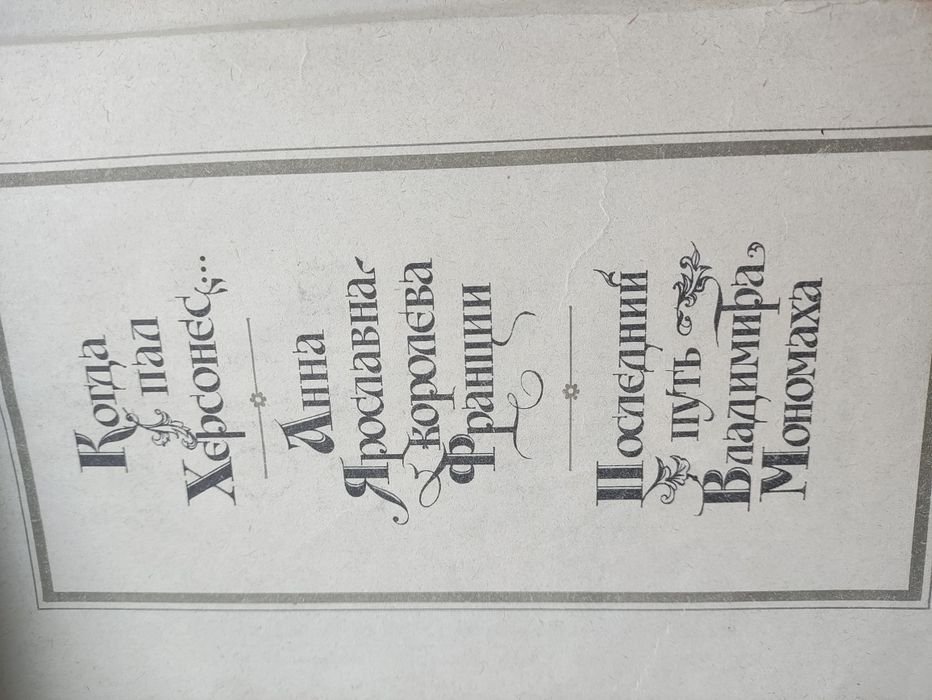 Когда
пал
Херсонес...
Анна
Ярославна
королева
Франции
Последний
путь
Владимира
Мономаха